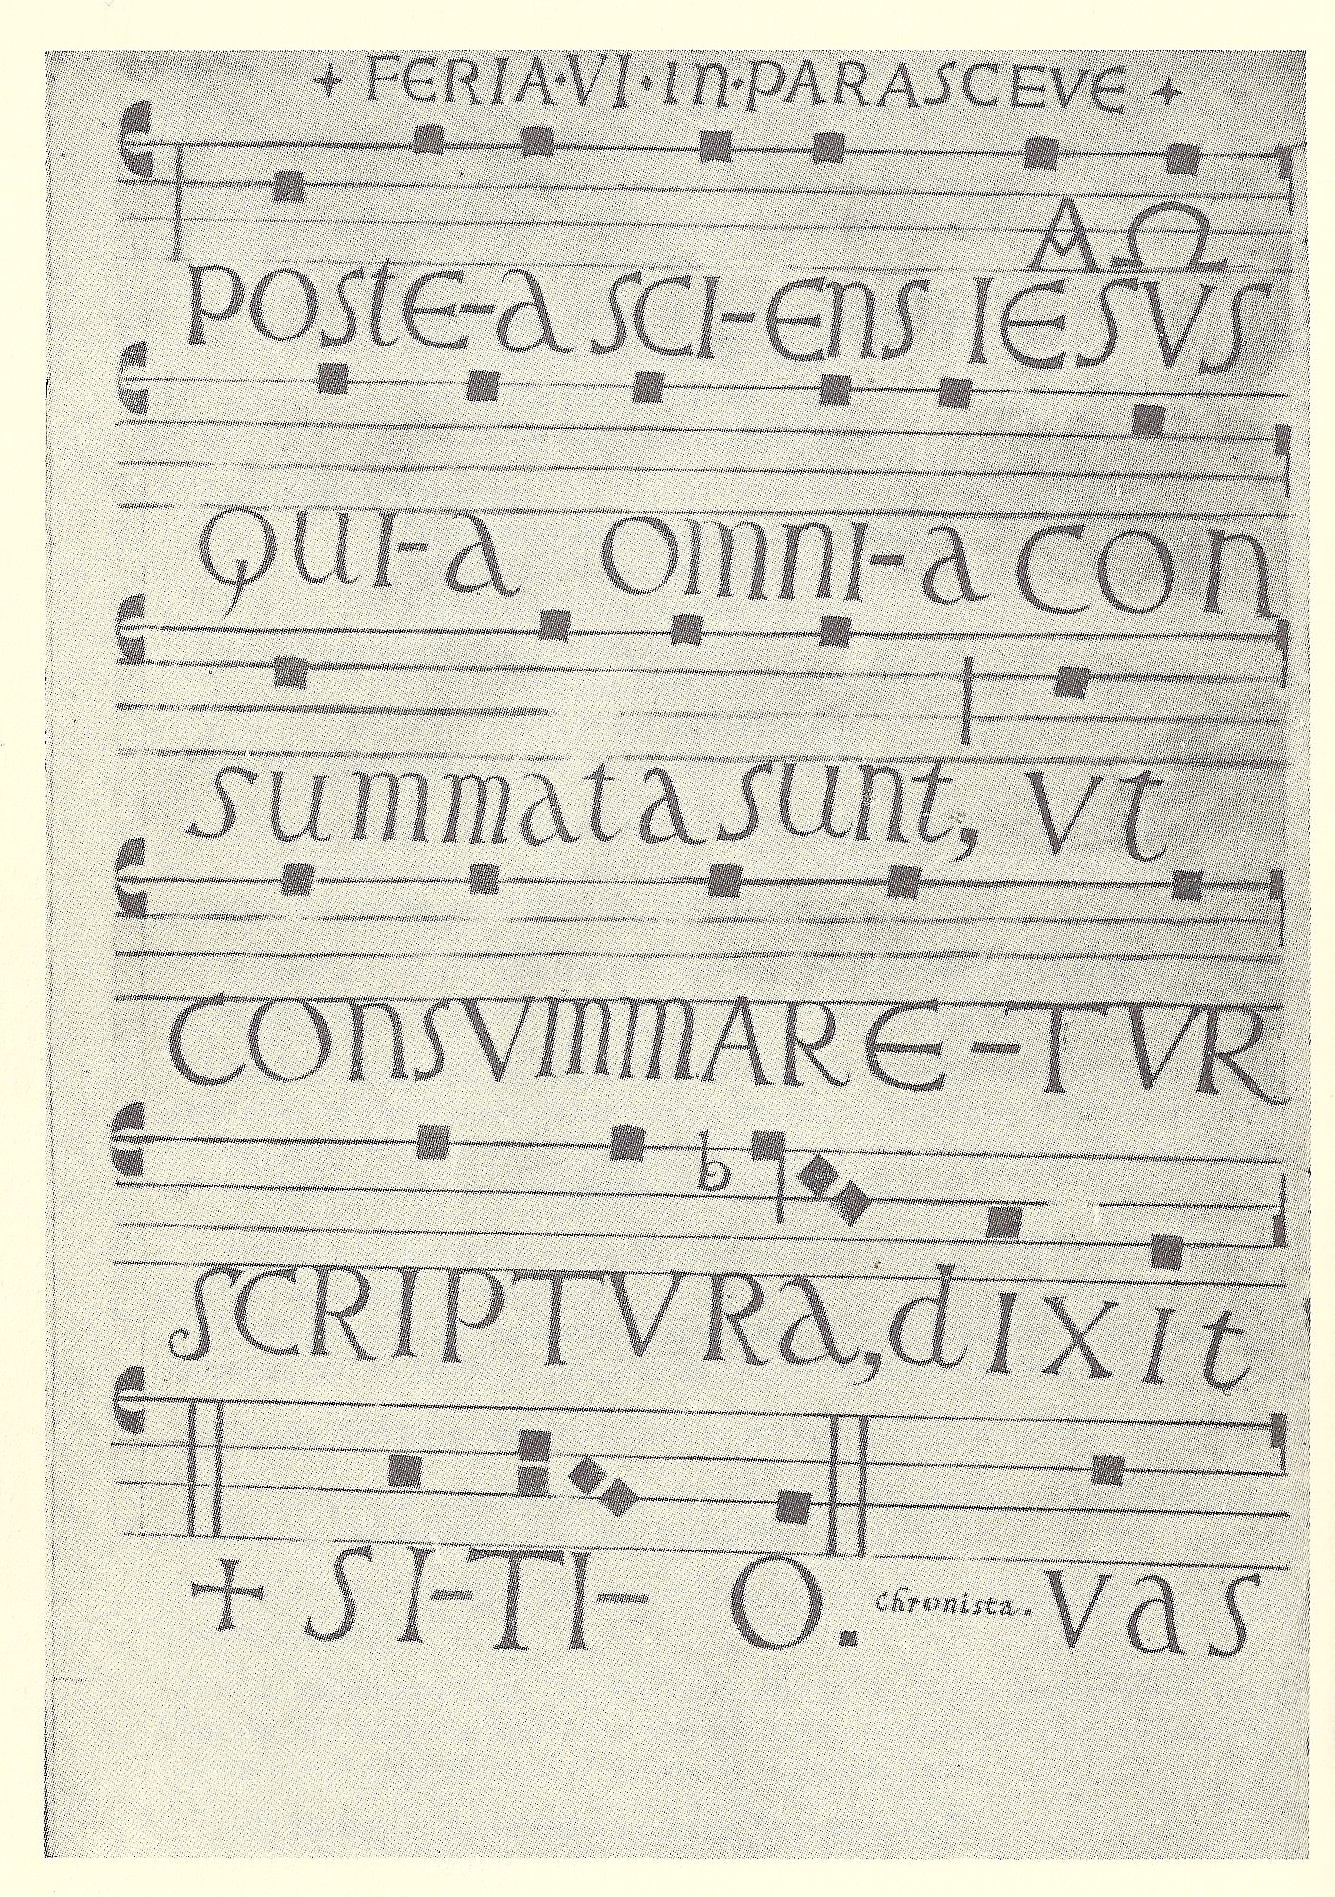 + FERIA·VI·In·PARASCEVE +
Α Ω
POSTE-A SCI-EnS IESVS
QUI-a Omni-a con
summata sunt, Vt
COnSVmmARE-TVR
SCRIPTVRa, dIXIt
+ SI-TI- O. chronista. Vas